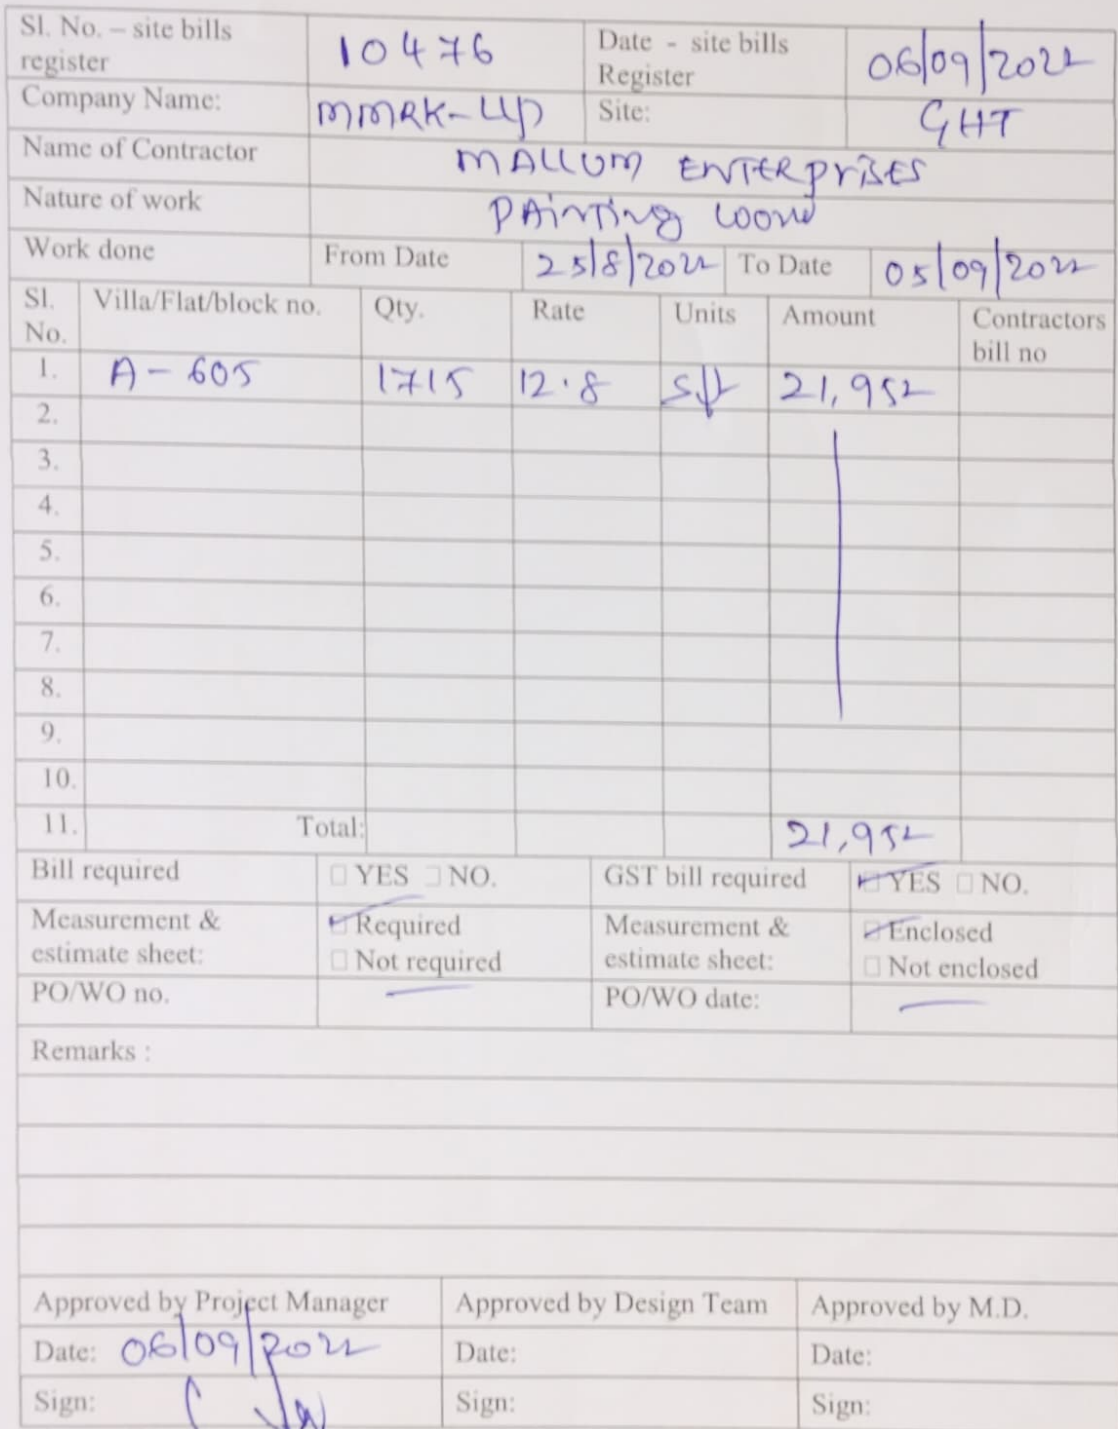 Sl. No. – site bills register 10476 Date - site bills Register 06/09/2022
Company Name: MMRK-LLP Site: GHT
Name of Contractor MALLUM ENTERPRISES
Nature of work PAINTING WORK
Work done From Date 25/8/2022 To Date 05/09/2022
Sl. No. Villa/Flat/block no. Qty. Rate Units Amount Contractors bill no
1. A-605 1715 12.8 Sft 21,952
2.
3.
4.
5.
6.
7.
8.
9.
10.
11. Total: 21,952
Bill required □ YES □ NO. GST bill required ☑ YES □ NO.
Measurement & estimate sheet: ☑ Required □ Not required Measurement & estimate sheet: ☑ Enclosed □ Not enclosed
PO/WO no. — PO/WO date: —
Remarks :
Approved by Project Manager Approved by Design Team Approved by M.D.
Date: 06/09/2022 Date: Date:
Sign: Sign: Sign: